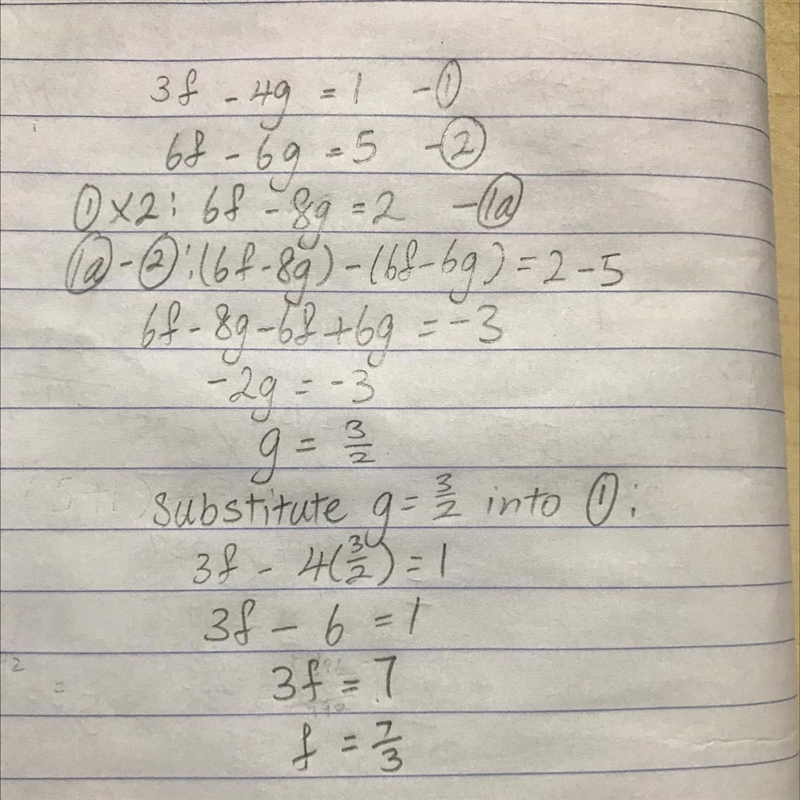 3f - 4g = 1 - ①
6f - 6g = 5 - ②
① × 2 : 6f - 8g = 2 - (1a)
(1a) - ② : (6f - 8g) - (6f - 6g) = 2 - 5
6f - 8g - 6f + 6g = -3
-2g = -3
g = 3/2
Substitute g = 3/2 into ① :
3f - 4(3/2) = 1
3f - 6 = 1
3f = 7
f = 7/3